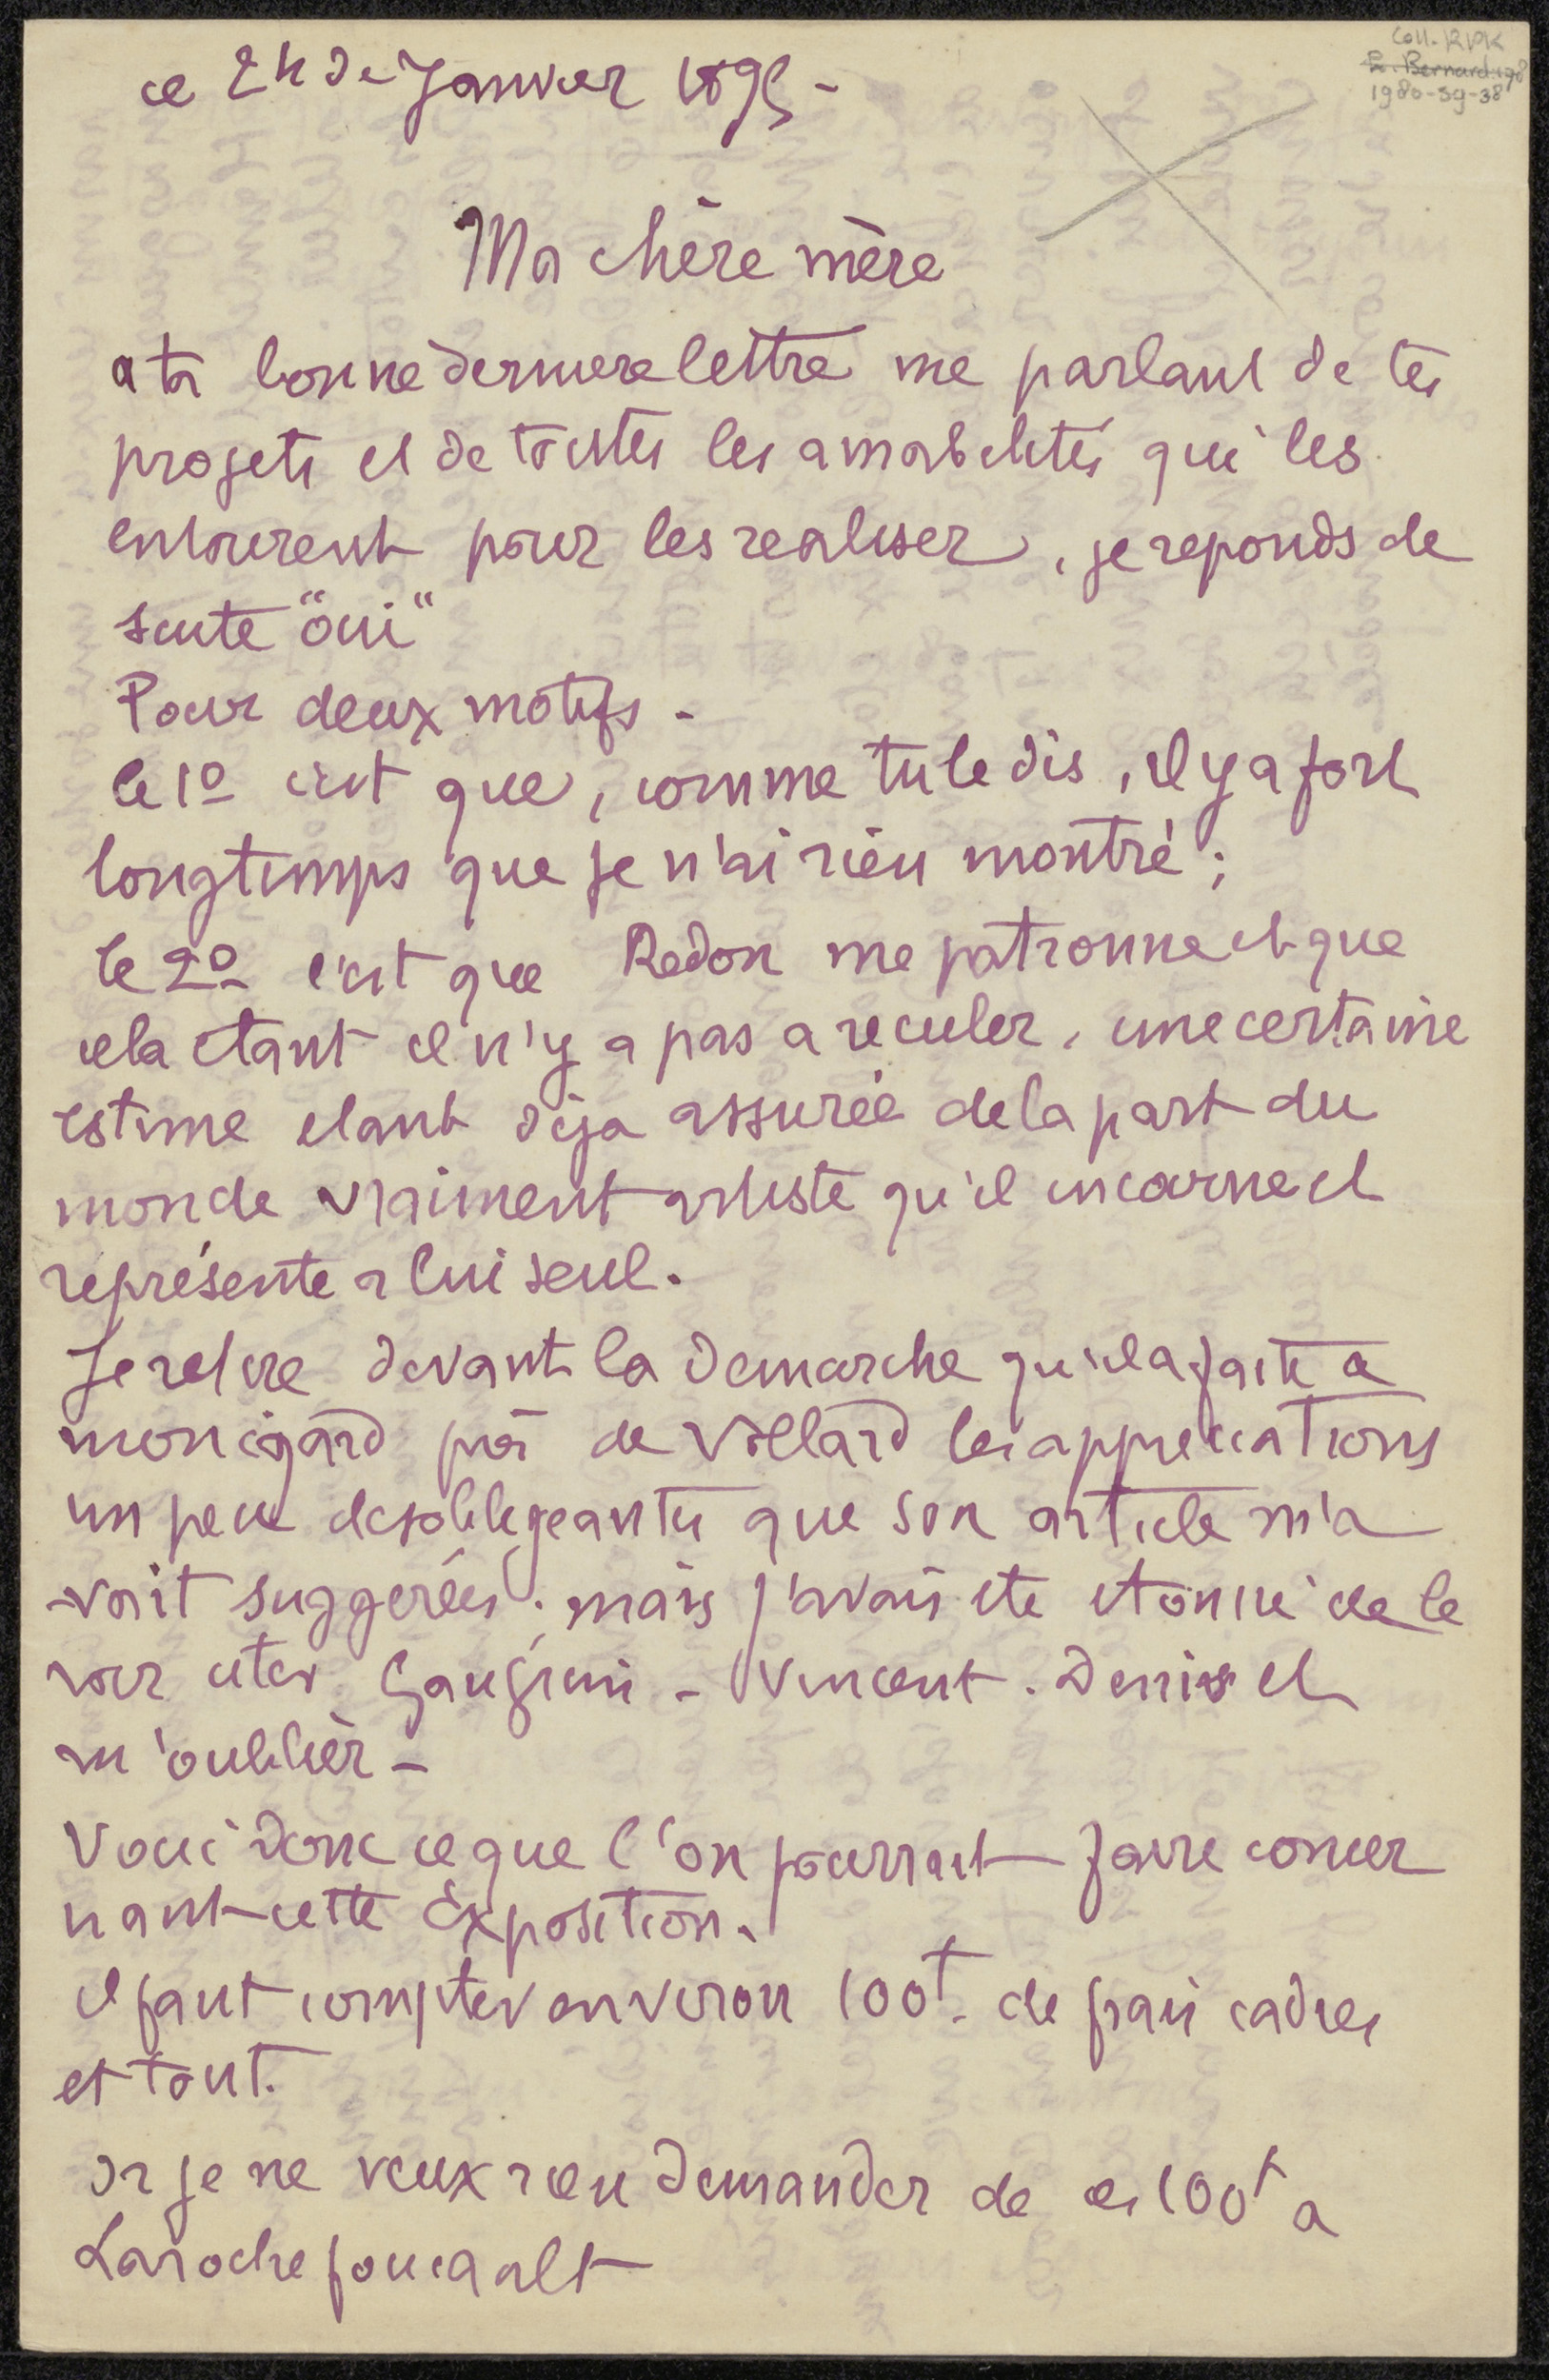 Coll. RPK
E. Bernard 198
1980-59-38
ce 24 de Janvier 1895 -
Ma chère mère
a ta bonne derniere lettre me parlant de tes
projets et de toutes les amabilités qui les
entourent pour les realiser, je reponds de
suite "oui"
Pour deux motifs -
le 1º c'est que, comme tu le dis, il y a fort
longtemps que je n'ai rien montré ;
le 2º c'est que Redon me patronne et que
cela etant il n'y a pas a reculer, une certaine
estime etant déja assurée de la part du
monde vraiment artiste qu'il incarne et
représente a lui seul.
Je retire devant la demarche qu'il a faite a
mon égard près de Vollard les appreciations
un peu desobligeantes que son article m'a
vait suggerées ; mais j'avais ete etonné de le
voir citer Gauguin - Vincent . Denis et
m'oublier -
Voici donc ce que l'on pourrait faire concer
nant cette Exposition.
il faut compter environ 100f. de frais cadres
et tout.
or je ne veux rien demander de ces 100f a
Larochefoucaalt